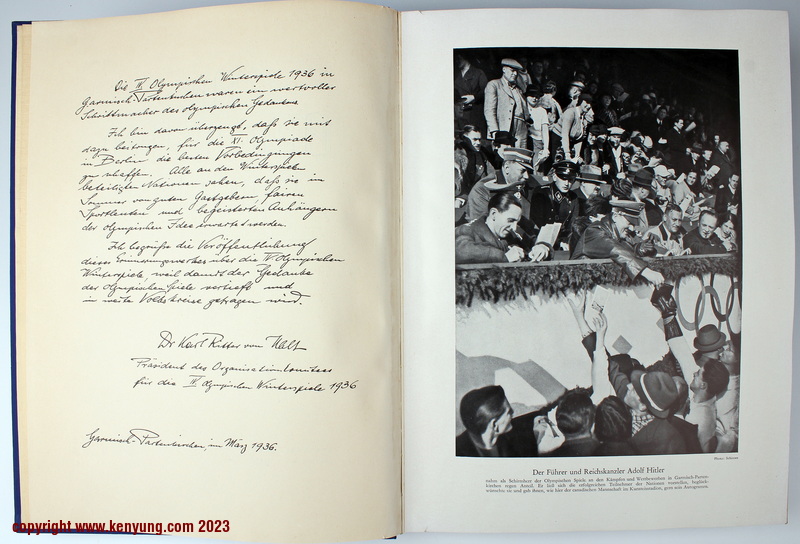 Die IV. Olympischen Winterspiele 1936 in
Garmisch-Partenkirchen waren ein wertvoller
Schrittmacher des olympischen Gedankens.
Ich bin davon überzeugt, daß sie mit
dazu beitragen, für die XI. Olympiade
in Berlin die besten Vorbedingungen
zu schaffen. Alle an den Winterspielen
beteiligten Nationen sahen, daß sie im
Sommer von guten Gastgebern, fairen
Sportleuten und begeisterten Anhängern
der olympischen Idee erwartet werden.
Ich begrüße die Veröffentlichung
dieses Erinnerungswerkes über die IV. Olympischen
Winterspiele, weil damit der Gedanke
der Olympischen Spiele vertieft und
in weite Volkskreise getragen wird.
Dr Karl Ritter von Halt
Präsident des Organisationskomitees
für die IV. Olympischen Winterspiele 1936
Garmisch-Partenkirchen, im März 1936.
Der Führer und Reichskanzler Adolf Hitler
nahm als Schirmherr der Olympischen Spiele an den Kämpfen und Wettbewerben in Garmisch-Parten-
kirchen regen Anteil. Er ließ sich die erfolgreichen Teilnehmer der Nationen vorstellen, beglück-
wünschte sie und gab ihnen, wie hier der kanadischen Mannschaft im Kunsteisstadion, gern sein Autogramm.
copyright www.kenyung.com 2023